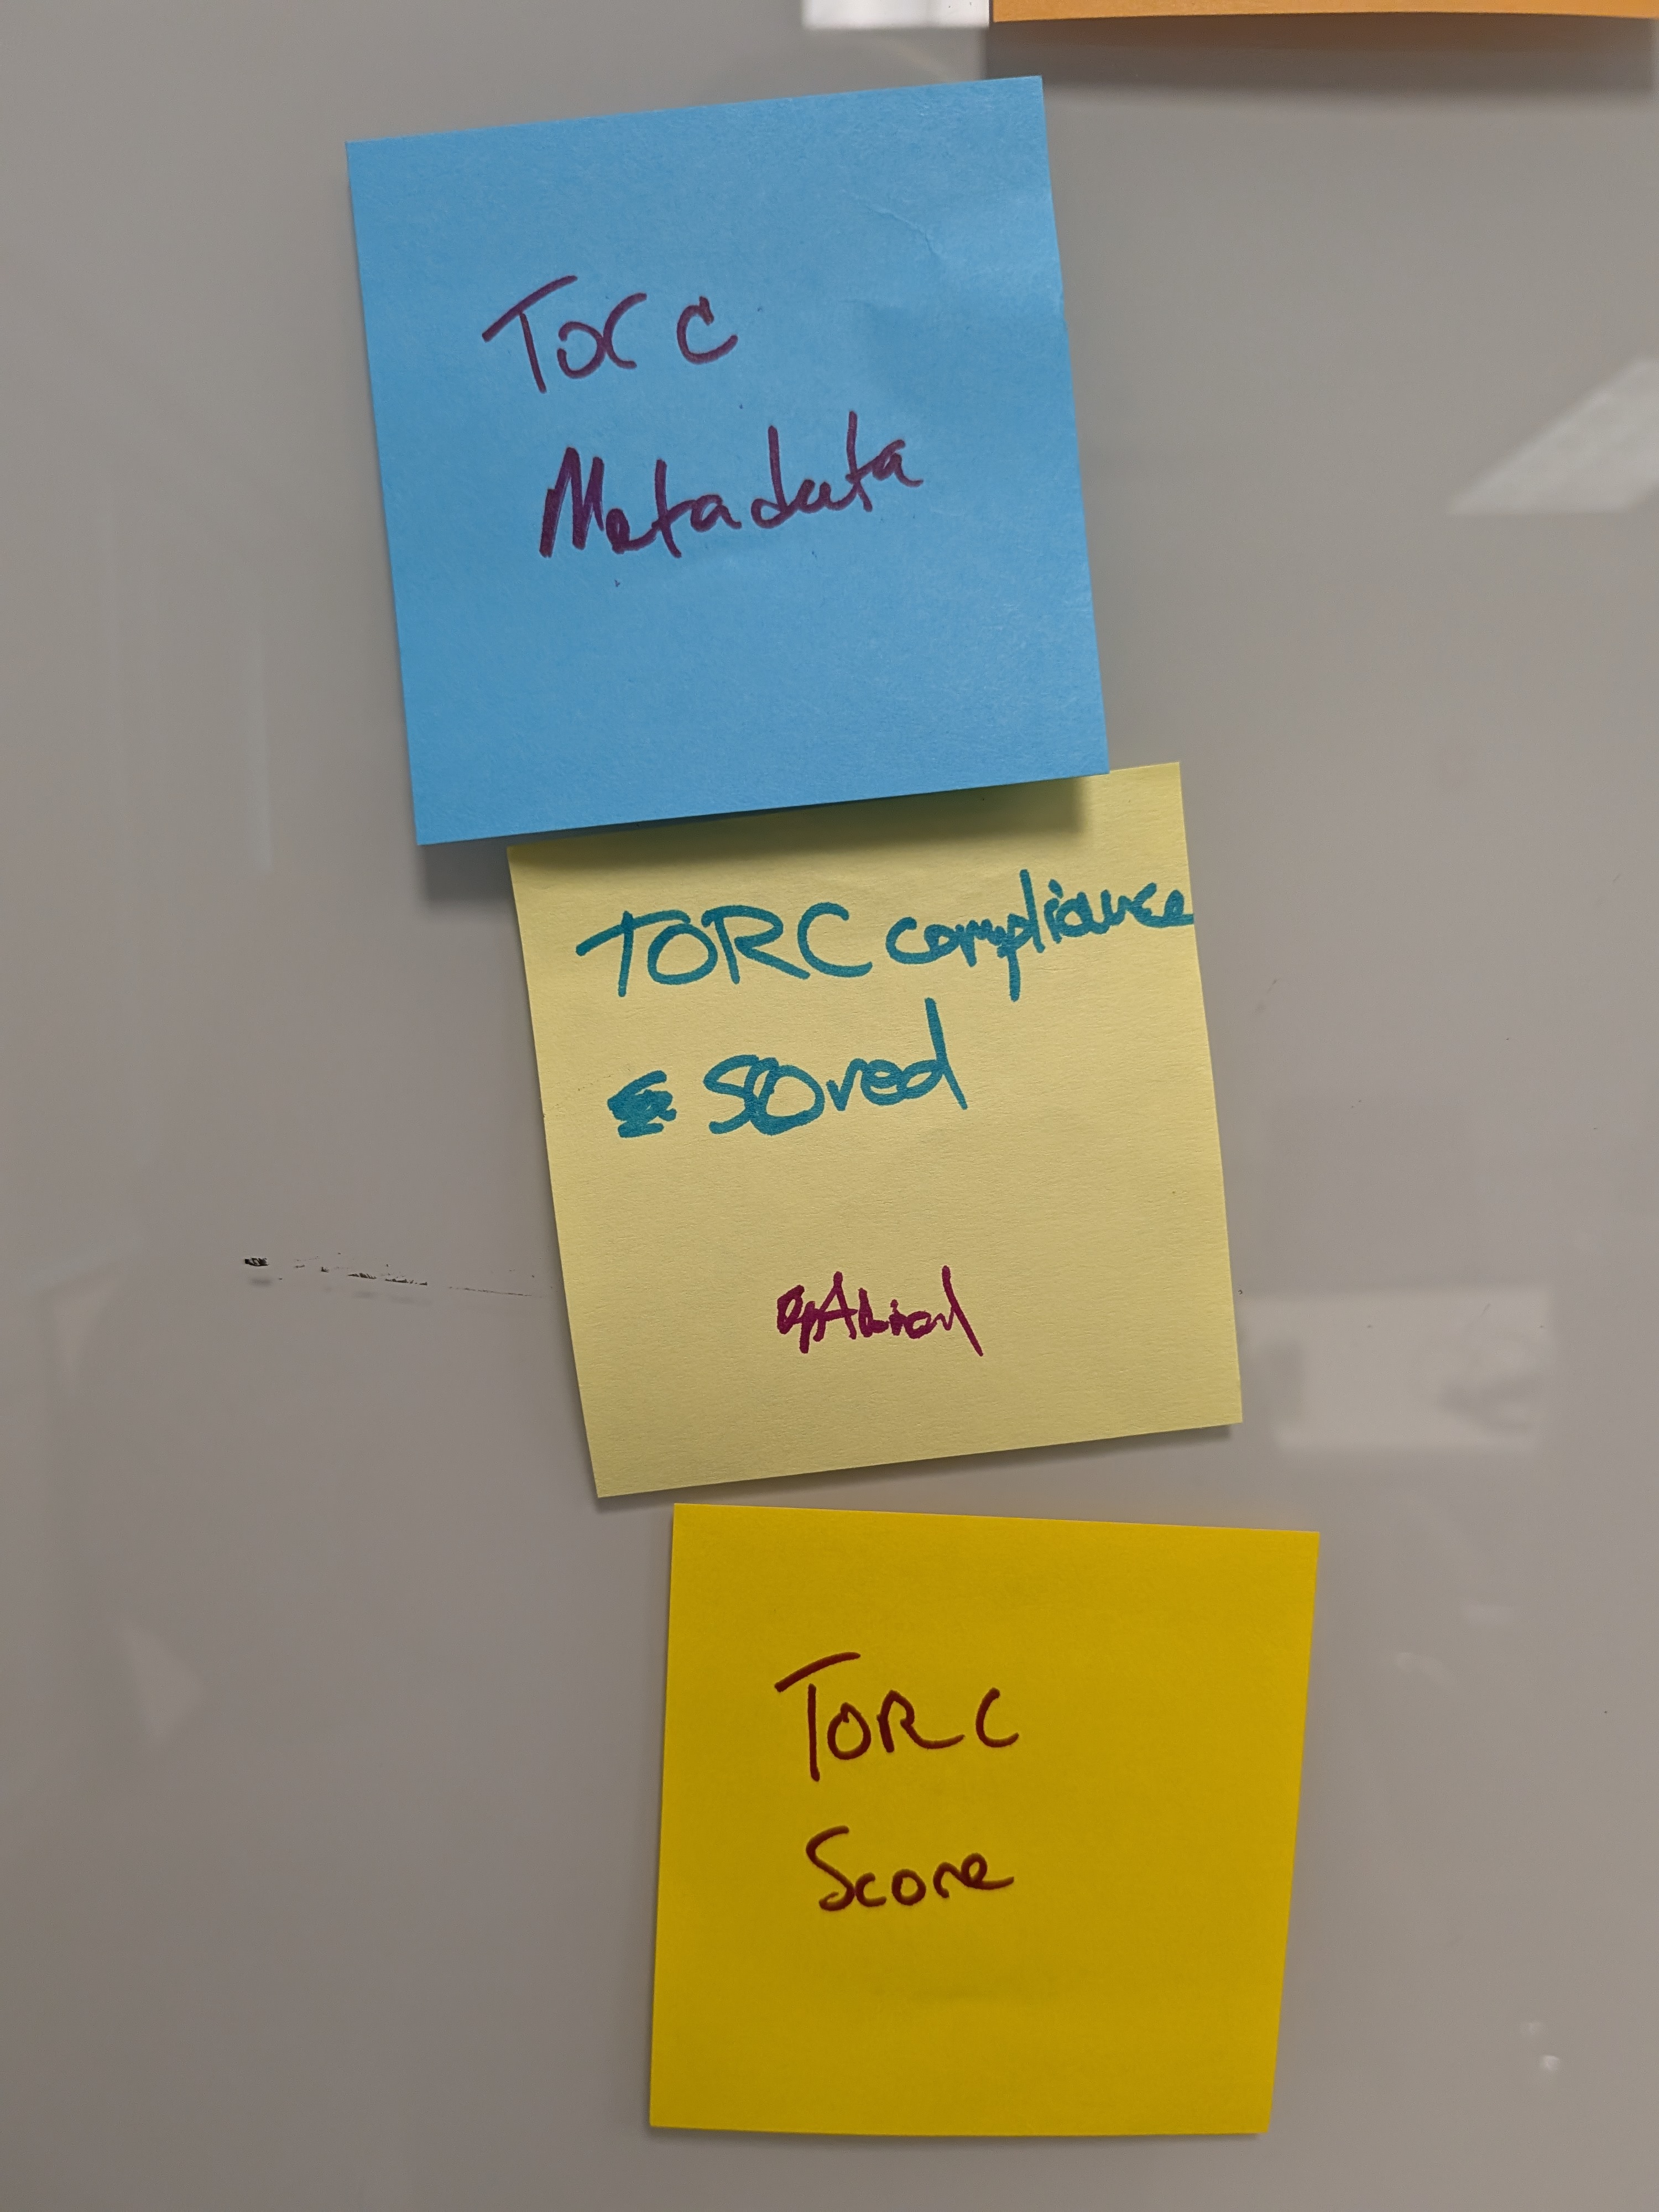 Torc
Metadata
TORC compliance
Sored
TORC
Score